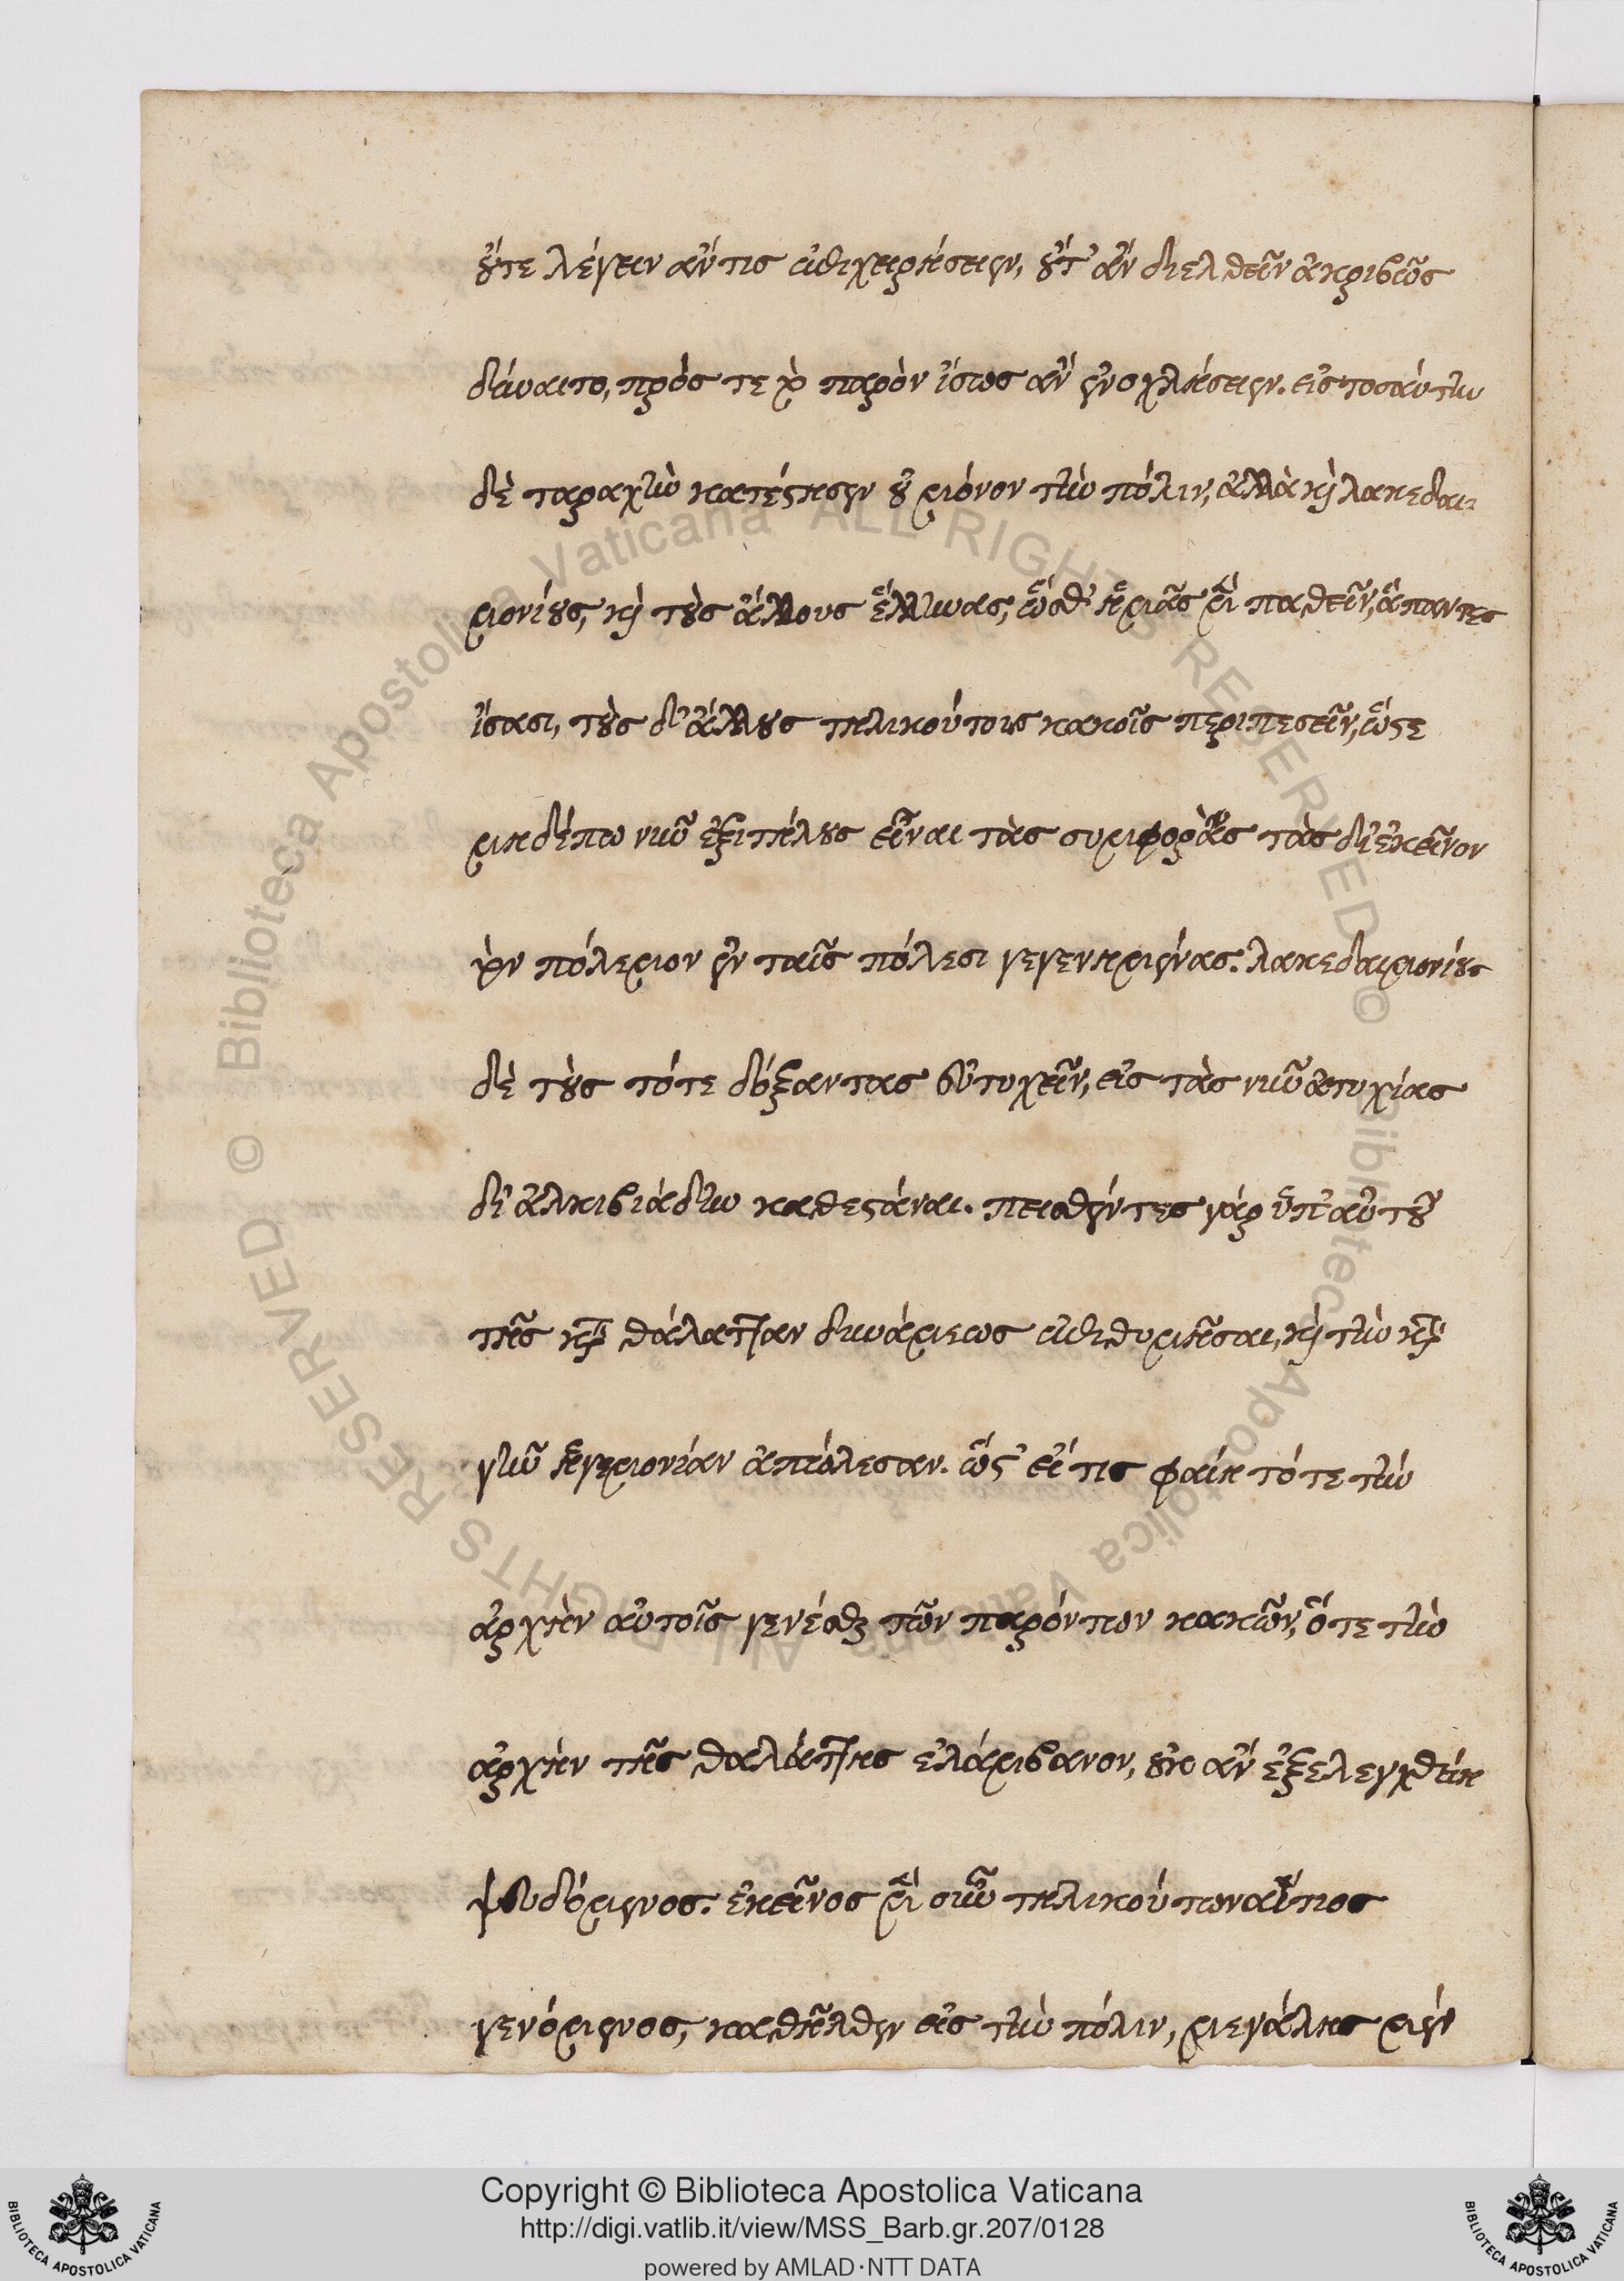 οὔτε λέγειν ἄν τις ἐπιχειρήσειεν, οὔτ' ἂν διελθεῖν ἀκριβῶς
δύναιτο, πρός τε τὸ παρὸν ἴσως ἂν ἐνοχλήσειεν. εἰς τοσαύτην
δὲ ταραχὴν κατέστησεν οὐ μόνον τὴν πόλιν, ἀλλὰ καὶ λακεδαι-
μονίους, καὶ τοὺς ἄλλους ἕλληνας, ὥσθ' ἡμᾶς μὲν παθεῖν, ἃ πάντες
ἴσασι, τοὺς δ' ἄλλους τηλικούτοις κακοῖς περιπεσεῖν, ὥστε
μηδέπω νῦν ἐξιτήλους εἶναι τὰς συμφορὰς τὰς δι' ἐκεῖνον
τὸν πόλεμον ἐν ταῖς πόλεσι γεγενημένας. λακεδαιμονίους
δὲ τοὺς τότε δόξαντας εὐτυχεῖν, εἰς τὰς νῦν ἀτυχίας
δι' ἀλκιβιάδην καθεστάναι. πεισθέντες γὰρ ὑπ' αὐτοῦ
τῆς κατὰ θάλατταν δυνάμεως ἐπιθυμῆσαι, καὶ τὴν κατὰ
γῆν ἡγεμονίαν ἀπώλεσαν. ὥστ' εἴ τις φαίη τότε τὴν
ἀρχὴν αὐτοῖς γενέσθαι τῶν παρόντων κακῶν, ὅτε τὴν
ἀρχὴν τῆς θαλάττης ἐλάμβανον, οὐκ ἂν ἐξελεγχθείη
ψευδόμενος. ἐκεῖνος μὲν οὖν τηλικούτων αἴτιος
γενόμενος, κατῆλθεν εἰς τὴν πόλιν, μεγάλης μὲν
Copyright © Biblioteca Apostolica Vaticana
http://digi.vatlib.it/view/MSS_Barb.gr.207/0128
powered by AMLAD·NTT DATA
BIBLIOTECA APOSTOLICA VATICANA
BIBLIOTECA APOSTOLICA VATICANA
© Biblioteca Apostolica Vaticana ALL RIGHTS RESERVED © Biblioteca Apostolica Vaticana ALL RIGHTS RESERVED